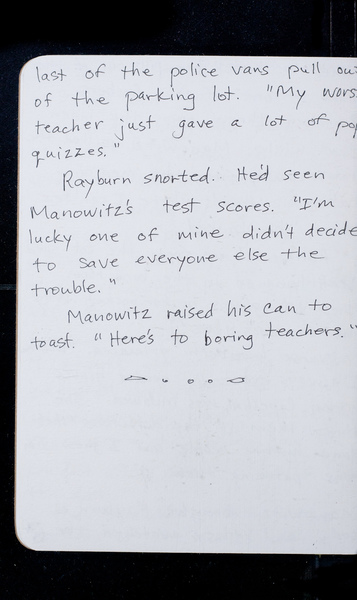 last of the police vans pull ou
of the parking lot. "My wors
teacher just gave a lot of pop
quizzes."
Rayburn snorted. He'd seen
Manowitz's test scores. "I'm
lucky one of mine didn't decide
to save everyone else the
trouble."
Manowitz raised his can to
toast. "Here's to boring teachers."